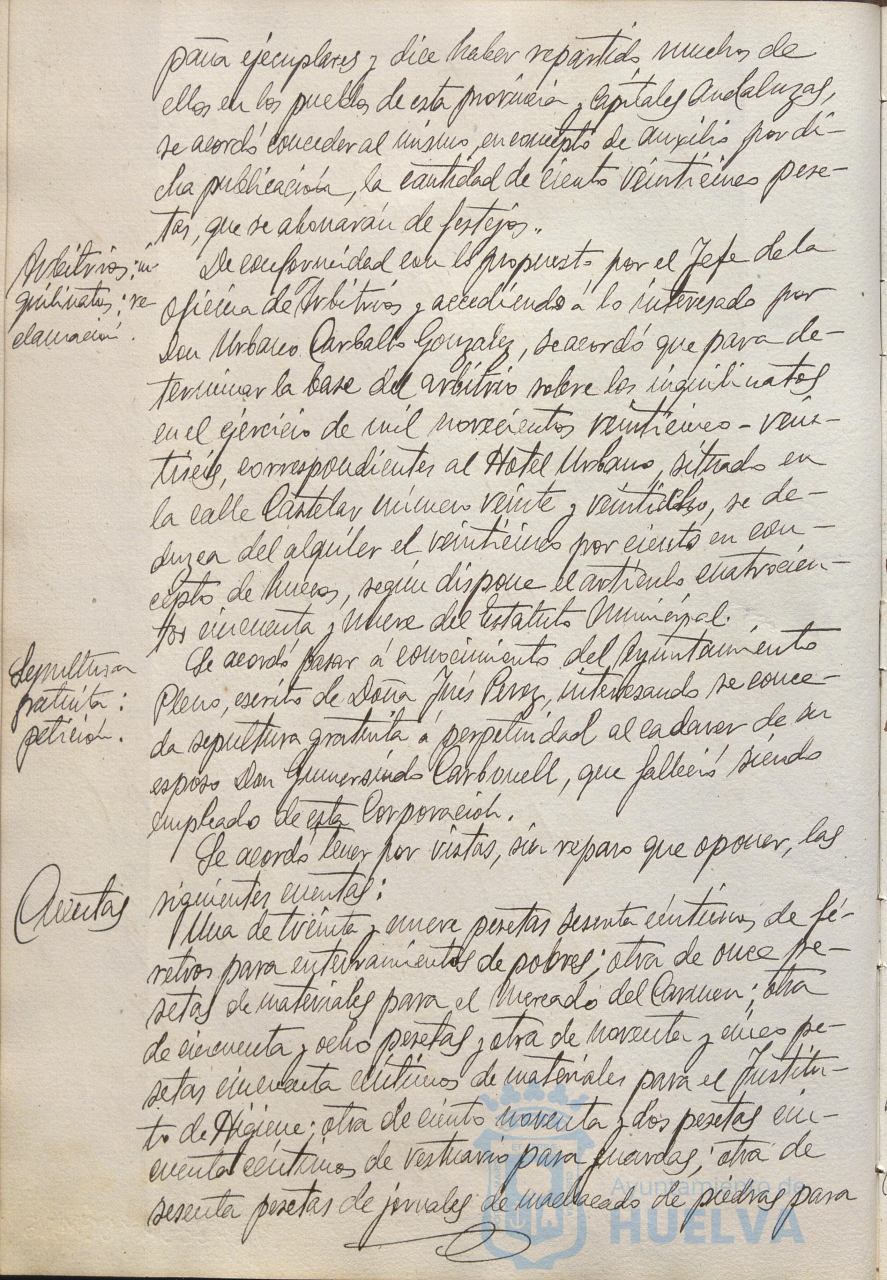 paña ejemplares y dice haber repartido muchos de
ellos en los pueblos de esta provincia y capitales Andaluzas,
se acordó conceder al mismo, en concepto de auxilio por di-
cha publicación, la cantidad de ciento veinticinco pese-
tas, que se abonarán de festejos.,
Arbitrios: in
quilinatos: re
clamación.
De conformidad con lo propuesto por el Jefe de la
oficina de Arbitrios y accediendo á lo interesado por
Don Urbano Carballo Gonzalez, se acordó que para de-
terminar la base del arbitrio sobre los inquilinatos
en el ejercicio de mil novecientos veinticinco - vein-
tiséis, correspondientes al Hotel Urbano, situado en
la calle Castelar número veinte y veintidos, se de-
duzca del alquiler el veinticinco por ciento en con-
cepto de huecos, según dispone el artículo cuatrocien-
tos cincuenta y nueve del Estatuto Municipal.
Sepultura
gratuita:
petición.
Se acordó pasar á conocimiento del Ayuntamiento
Pleno, escrito de Doña Inés Perez, interesando se conce-
da sepultura gratuita á perpetuidad al cadaver de su
esposo Don Gumersindo Carbonell, que falleció siendo
empleado de esta Corporación.
Cuentas
Se acordó tener por vistas, sin reparo que oponer, las
siguientes cuentas:
Una de treinta y nueve pesetas sesenta céntimos de fé-
retros para enterramientos de pobres; otra de once pe-
setas de materiales para el Mercado del Carmen; otra
de cincuenta y ocho pesetas y otra de noventa y cinco pe-
setas cincuenta céntimos de materiales para el Institu-
to de Higiene; otra de ciento noventa y dos pesetas cin-
cuenta céntimos de vestuario para guardas; otra de
sesenta pesetas de jornales de machacado de piedras para
Ayuntamiento de
HUELVA